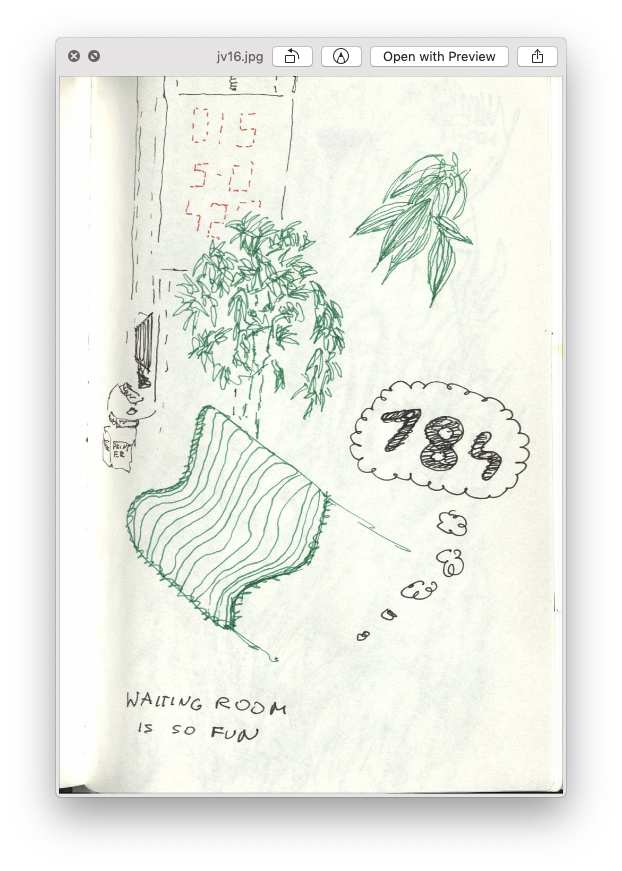 jv16.jpg
Open with Preview
015
5-0
PRINT
ER
784
WAITING ROOM
IS SO FUN